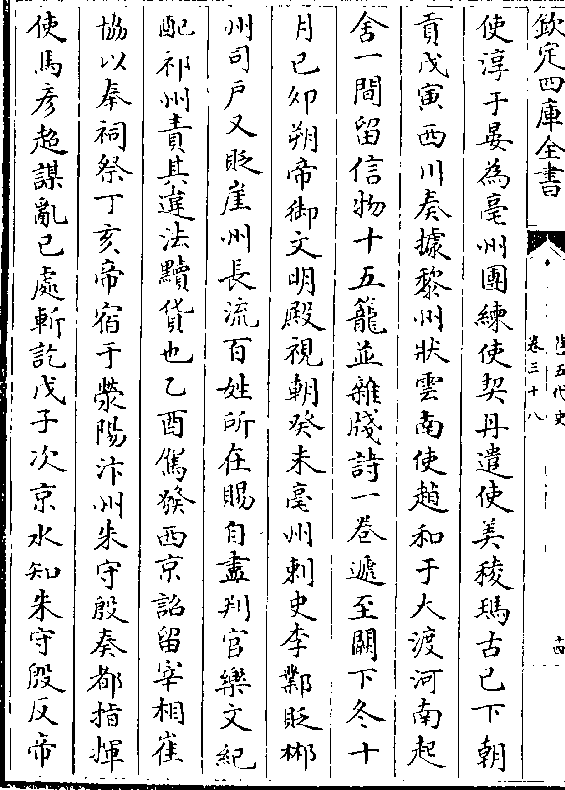 欽定四庫全書
舊五代史
卷三十八
十四
使淳于晏為亳州團練使契丹遣使美稜瑪古已下朝
貢戊寅西川奏據黎州狀雲南使趙和于大渡河南起
舍一間留信物十五籠並雜牋詩一卷遞至闕下冬十
月已夘朔帝御文明殿視朝癸未亳州刺史李鄴貶郴
州司戶又貶崖州長流百姓所在賜自盡判官樂文紀
配祁州責其違法黷貨也乙酉駕發西京詔留宰相崔
協以奉祠祭丁亥帝宿于滎陽汴州朱守殷奏都指揮
使馬彦超謀亂已處斬訖戊子次京水知朱守殷反帝